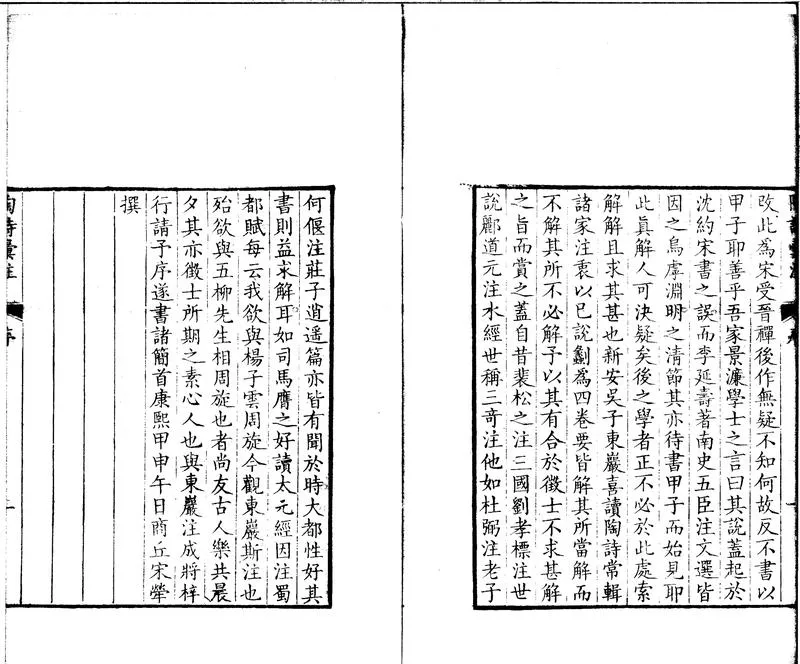 攺此為宋受晉禪後作無疑不知何故反不書以
甲子耶善乎吾家景濂學士之言曰其說蓋起於
沈約宋書之誤而李延壽著南史五臣注文選皆
因之烏虖淵明之清節其亦待書甲子而始見耶
此眞解人可決疑矣後之學者正不必於此處索
解解且求其甚也新安吳子東巖喜讀陶詩常輯
諸家注衷以已說劃為四卷要皆解其所當解而
不解其所不必解予以其有合於徵士不求甚解
之旨而賞之蓋自昔裴松之注三國劉孝標注世
說酈道元注水經世稱三竒注他如杜弼注老子
何偃注莊子逍遥篇亦皆有聞於時大都性好其
書則益求解耳如司馬膺之好讀太元經因注蜀
都賦每云我欲與楊子雲周旋今觀東巖斯注也
殆欲與五柳先生相周旋也者尚友古人樂共晨
夕其亦徵士所期之素心人也與東巖注成將梓
行請予序遂書諸簡首康熙甲申午日商丘宋犖
撰
陶詩彙注
序